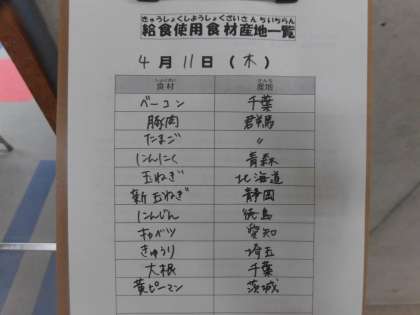 きゅうしょくしようしょくざいさんちいちらん
給食使用食材産地一覧
4月11日(木)
しょくざい さんち
食材 産地
ベーコン 千葉
豚肉 群馬
たまご 〃
にんにく 青森
玉ねぎ 北海道
新玉ねぎ 静岡
にんじん 徳島
キャベツ 愛知
きゅうり 埼玉
大根 千葉
黄ピーマン 茨城